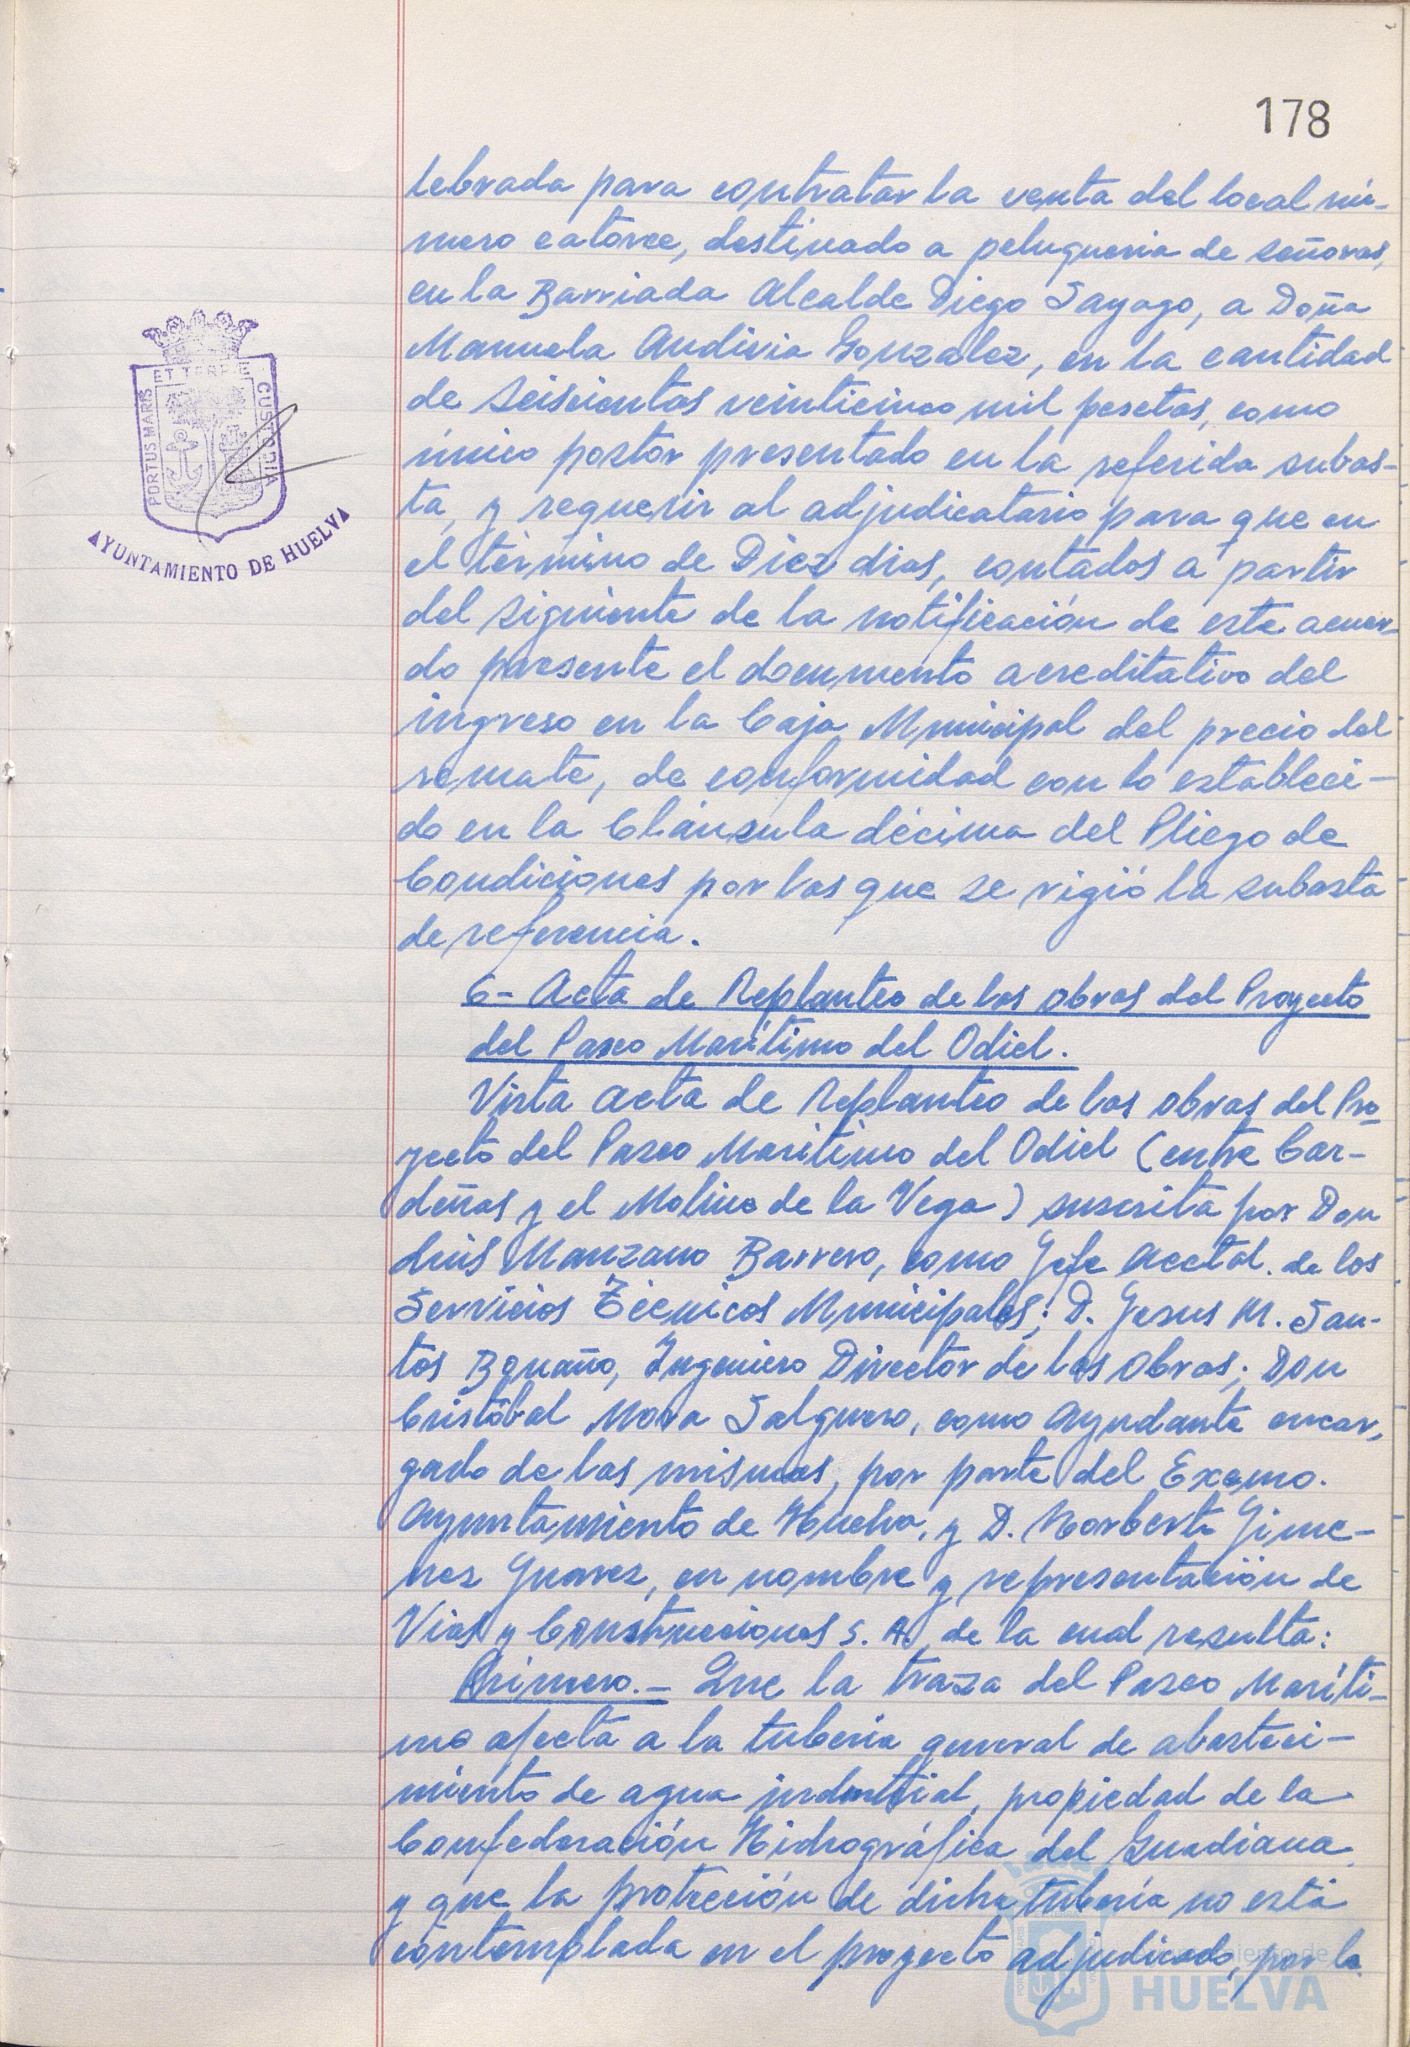 178
lebrada para contratar la venta del local nú-
mero catorce, destinado a peluqueria de señoras,
en la Barriada Alcalde Diego Sayago, a Doña
Manuela Audivia Gonzalez, en la cantidad
de Seiscientas veinticinco mil pesetas, como
único postor presentado en la referida subas-
ta, y requerir al adjudicatario para que en
el término de Diez dias, contados a partir
del siguiente de la notificación de este acuer-
do presente el documento acreditativo del
ingreso en la Caja Municipal del precio del
remate, de conformidad con lo estableci-
do en la Cláusula décima del Pliego de
Condiciones por las que se rigió la subasta
de referencia.
6- Acta de Replanteo de las obras del Proyecto
del Paseo Marítimo del Odiel.
Vista acta de Replanteo de las obras del Pro-
yecto del Paseo Marítimo del Odiel (entre Car-
deñas y el Molino de la Vega) suscrita por Don
Luis Manzano Barrero, como Jefe Acctal. de los
Servicios Técnicos Municipales; D. Jesus M. San-
tos Bonaño, Ingeniero Director de las obras; Don
Cristóbal Mora Salguero, como Ayudante encar-
gado de las mismas, por parte del Excmo.
Ayuntamiento de Huelva, y D. Norberto Jime-
nez Juarez, en nombre y representación de
Vias y Construcciones S. A. de la cual resulta:
Primero.- Que la traza del Paseo Maríti-
mo afecta a la tuberia general de abasteci-
miento de agua industrial, propiedad de la
Confederación Hidrográfica del Guadiana
y que la protección de dicha tubería no está
contemplada en el proyecto adjudicado, por lo
PORTUS MARIS
ET TERRAE
CUSTODIA
AYUNTAMIENTO DE HUELVA
HUELVA